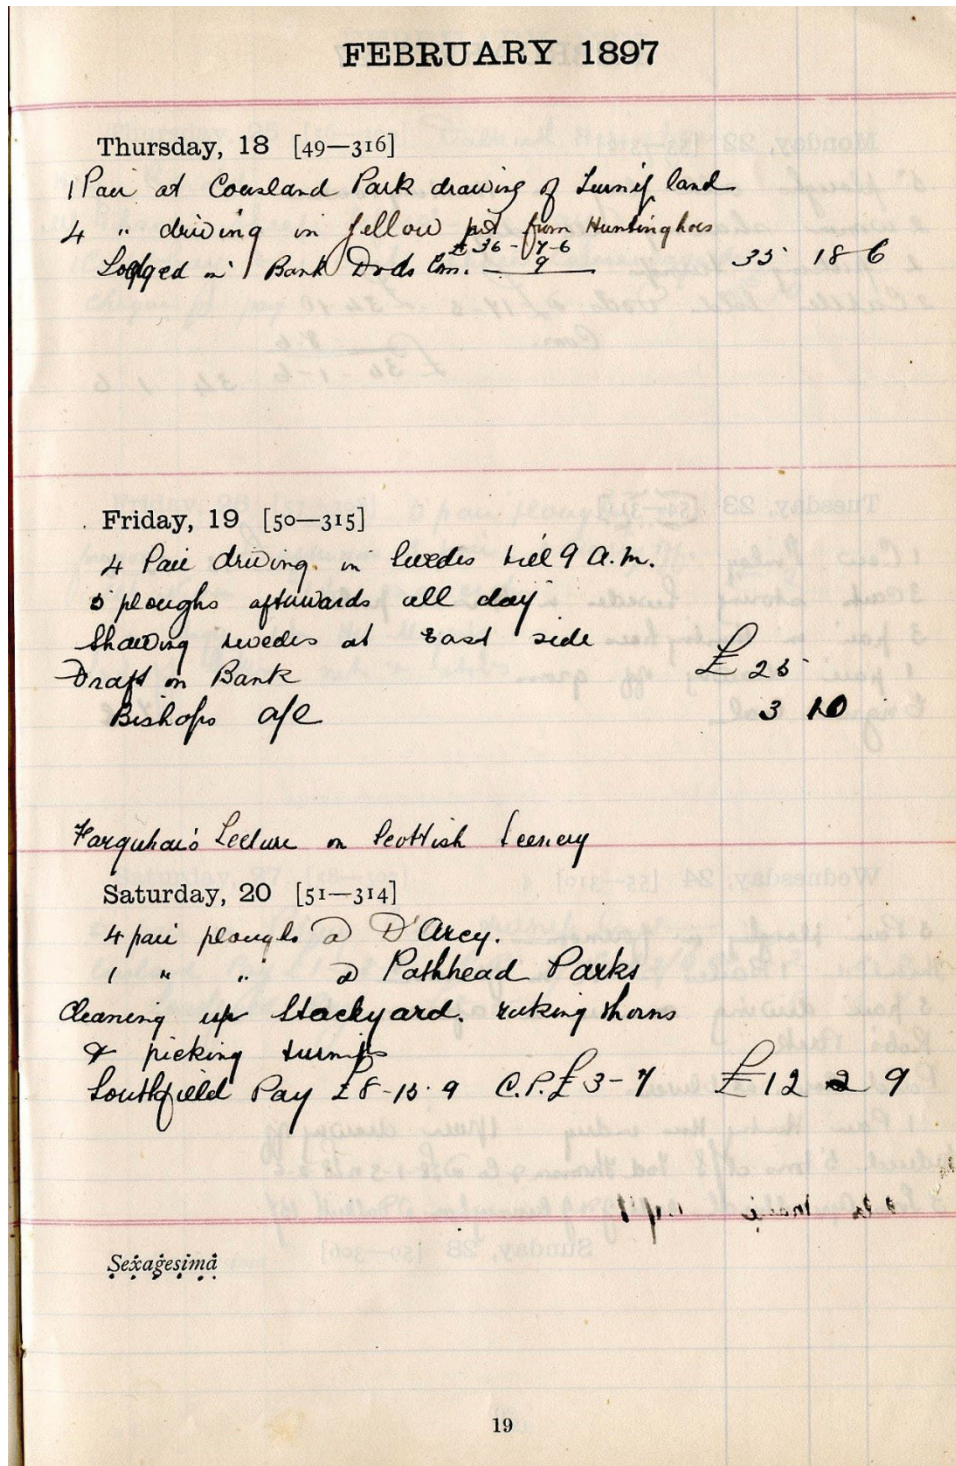 FEBRUARY 1897
Thursday, 18 [49—316]
1 Pair at Cousland Park drawing of Turnip land
4 " driving in fellow pit from Huntinghoes
£36-7-6
Lodged in Bank Dods Com. 9 35 18 6
Friday, 19 [50—315]
4 Pair driving in Swedes till 9 A.M.
5 ploughs afterwards all day
Shawing swedes at East side
Draft on Bank £25
Bishops a/c 3 10
Farquhar's Lecture on Scottish Scenery
Saturday, 20 [51—314]
4 pair ploughs @ D'Arcy.
1 " " @ Pathhead Parks
Cleaning up Stackyard. raking thorns
& picking turnips
Southfield Pay £8-15-9 C.P. £3-7 £12 2 9
Sexagesima
19